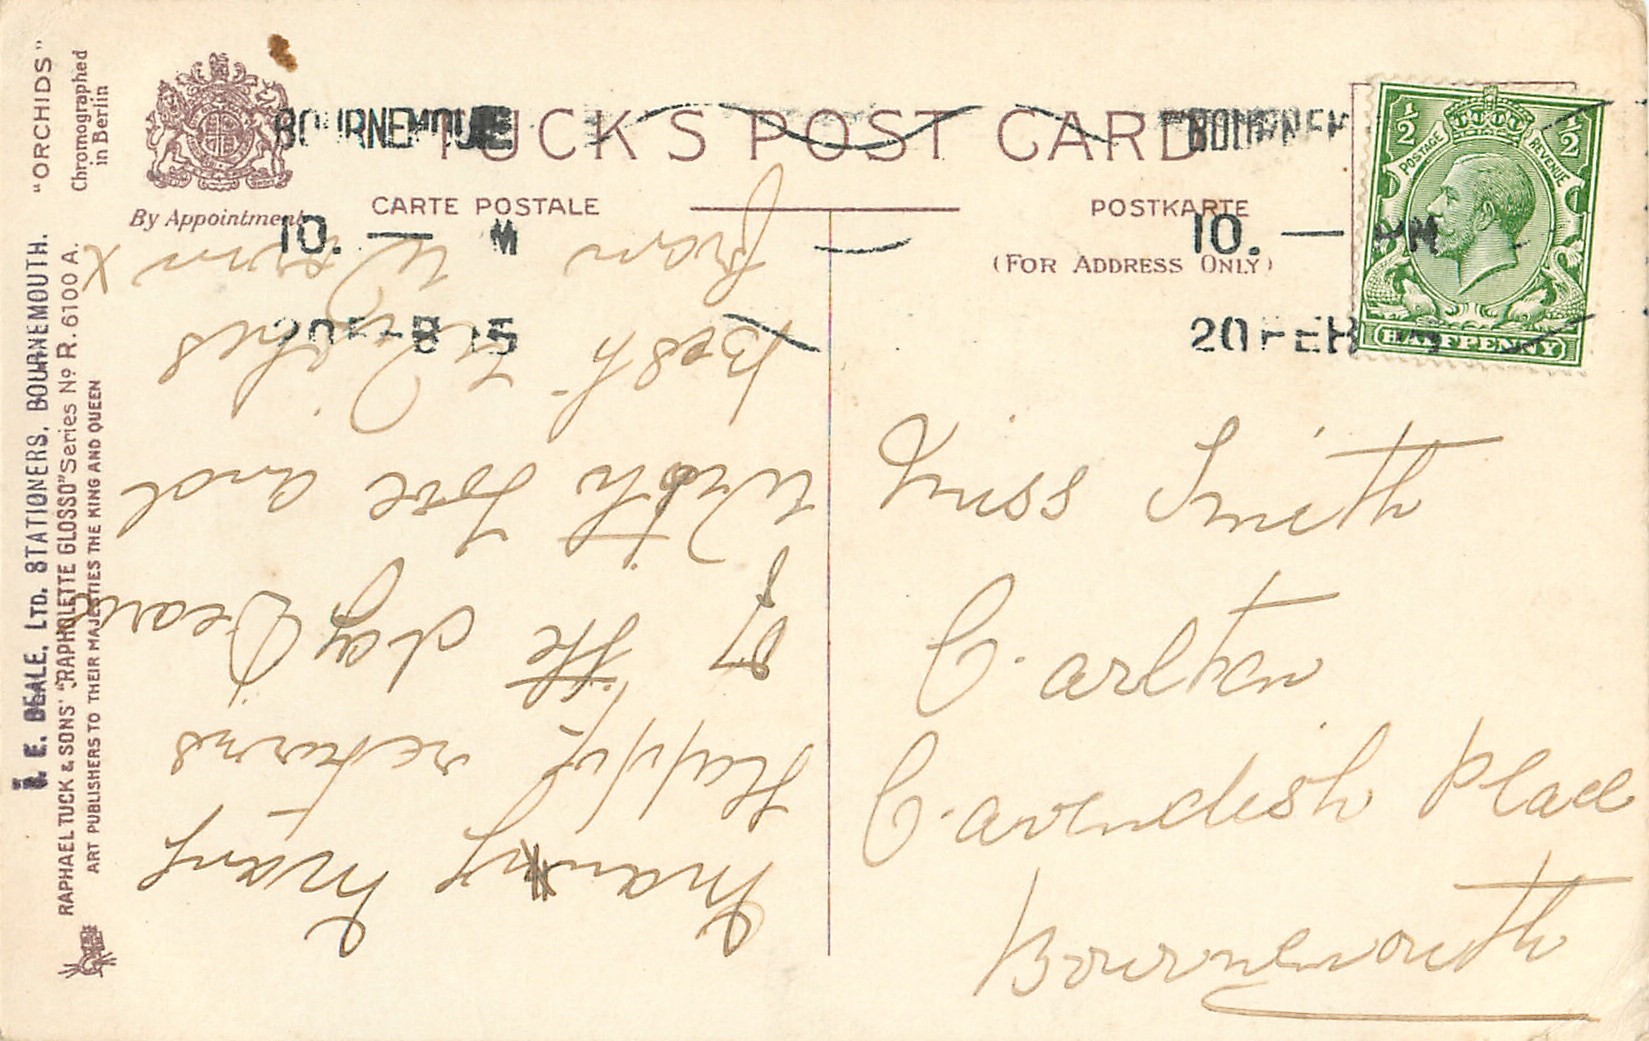 "ORCHIDS"
Chromographed
in Berlin
By Appointment
TUCK'S POST CARD
CARTE POSTALE
POSTKARTE
(FOR ADDRESS ONLY)
BOURNEMOU
10. — M
20 FEB 15
BOURNEM
10. — PM
20 FEB
½ ½
POSTAGE REVENUE
HALFPENNY
E. BEALE, LTD. STATIONERS, BOURNEMOUTH.
RAPHAEL TUCK & SONS' "RAPHOLETTE GLOSSO" Series No R. 6100 A.
ART PUBLISHERS TO THEIR MAJESTIES THE KING AND QUEEN
Many Many
Happy returns
of the day Dear
With Love and
Best Wishes
from X
Miss Smith
Carlton
Cavendish Place
Bournemouth